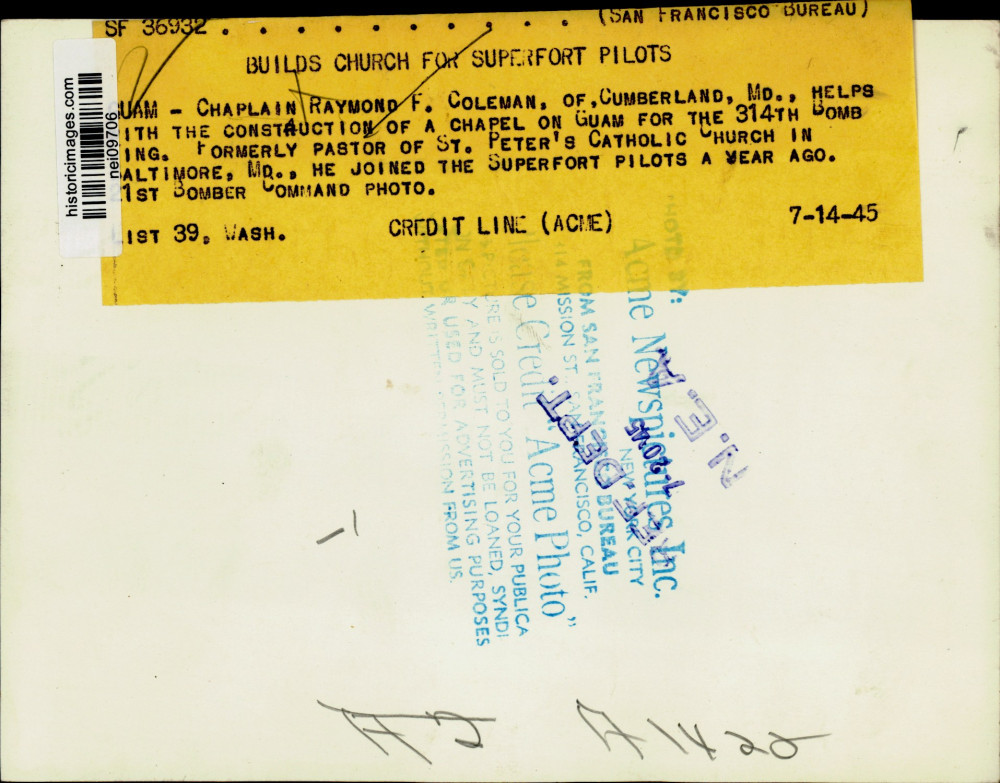 SF 36932 . . . . . . . . . . (SAN FRANCISCO BUREAU)
BUILDS CHURCH FOR SUPERFORT PILOTS
UAM - CHAPLAIN RAYMOND F. COLEMAN, OF, CUMBERLAND, MD., HELPS
ITH THE CONSTRUCTION OF A CHAPEL ON GUAM FOR THE 314TH BOMB
ING. FORMERLY PASTOR OF ST. PETER'S CATHOLIC CHURCH IN
ALTIMORE, MD., HE JOINED THE SUPERFORT PILOTS A YEAR AGO.
1ST BOMBER COMMAND PHOTO.
IST 39, WASH. CREDIT LINE (ACME) 7-14-45
historicimages.com
nei09706
PHOTO BY:
Acme Newspictures Inc.
NEW YORK CITY
FROM SAN FRANCISCO BUREAU
MISSION ST., SAN FRANCISCO, CALIF.
Please Credit "Acme Photo"
PICTURE IS SOLD TO YOU FOR YOUR PUBLICA
Y AND MUST NOT BE LOANED, SYNDI
USED FOR ADVERTISING PURPOSES
WRITTEN PERMISSION FROM US.
N. E. A.
REF. DEPT.